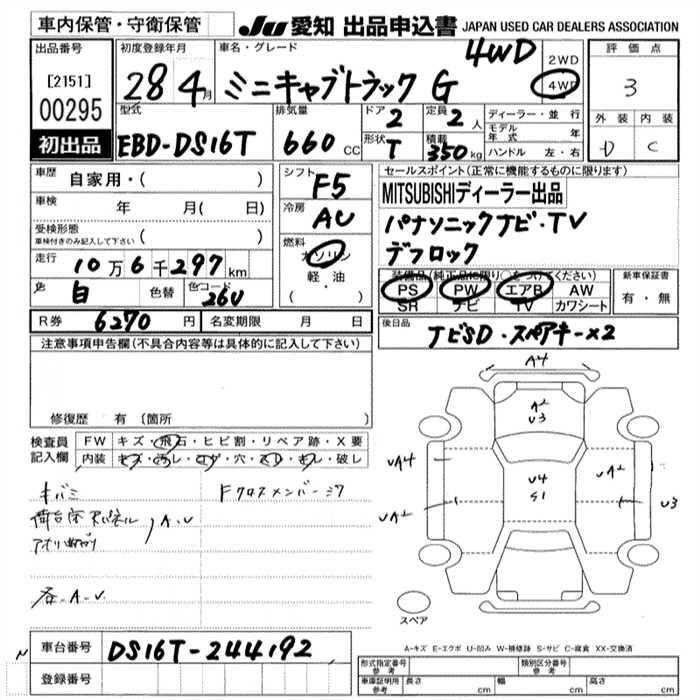 車内保管・守衛保管
JU 愛知 出品申込書 JAPAN USED CAR DEALERS ASSOCIATION
出品番号
[2151]
00295
初出品
初度登録年月
28 4月
車名・グレード
ミニキャブトラック G 4WD
2WD
4WD
評価点
3
外装 内装
D C
型式
EBD-DS16T
排気量
660 CC
ドア
2
定員
2人
形状
T
積載
350kg
ディーラー・並行
モデル年式 年
ハンドル 左・右
車歴 自家用・( )
車検 年 月( 日)
受検形態
車検付きのみ記入して下さい ( )
走行 10万6千297km
色 白 色替 色コード 26U
シフト
F5
冷房
AC
燃料
ガソリン
軽・油
( )
セールスポイント(正常に機能するものに限ります)
MITSUBISHIディーラー出品
パナソニックナビ・TV
デフロック
装備品(純正品に限り○をつけてください)
PS PW エアB AW
SR ナビ TV カワシート
新車保証書
有・無
R券 6270円 名変期限 月 日
後日品 ナビSD・スペアキー×2
注意事項申告欄(不具合内容等は具体的に記入して下さい)
修復歴 有 〔箇所 〕
検査員記入欄
FW キズ・飛石・ヒビ割・リペア跡・X要
内装 キズ・汚レ・コゲ・穴・スレ・キレ・破レ
キバミ
Fクロスメンバーミワ
A・U
A4
A2
U3
UA4
U4
S1
UA2
UA2
U3
スペア
A-キズ E-エクボ U-凹み W-補修跡 S-サビ C-腐食 XX-交換済
車台番号 DS16T-244192
登録番号
形式指定番号 参考
類別区分番号 参考
車庫証明用 参考
長さ cm
幅 cm
高さ cm